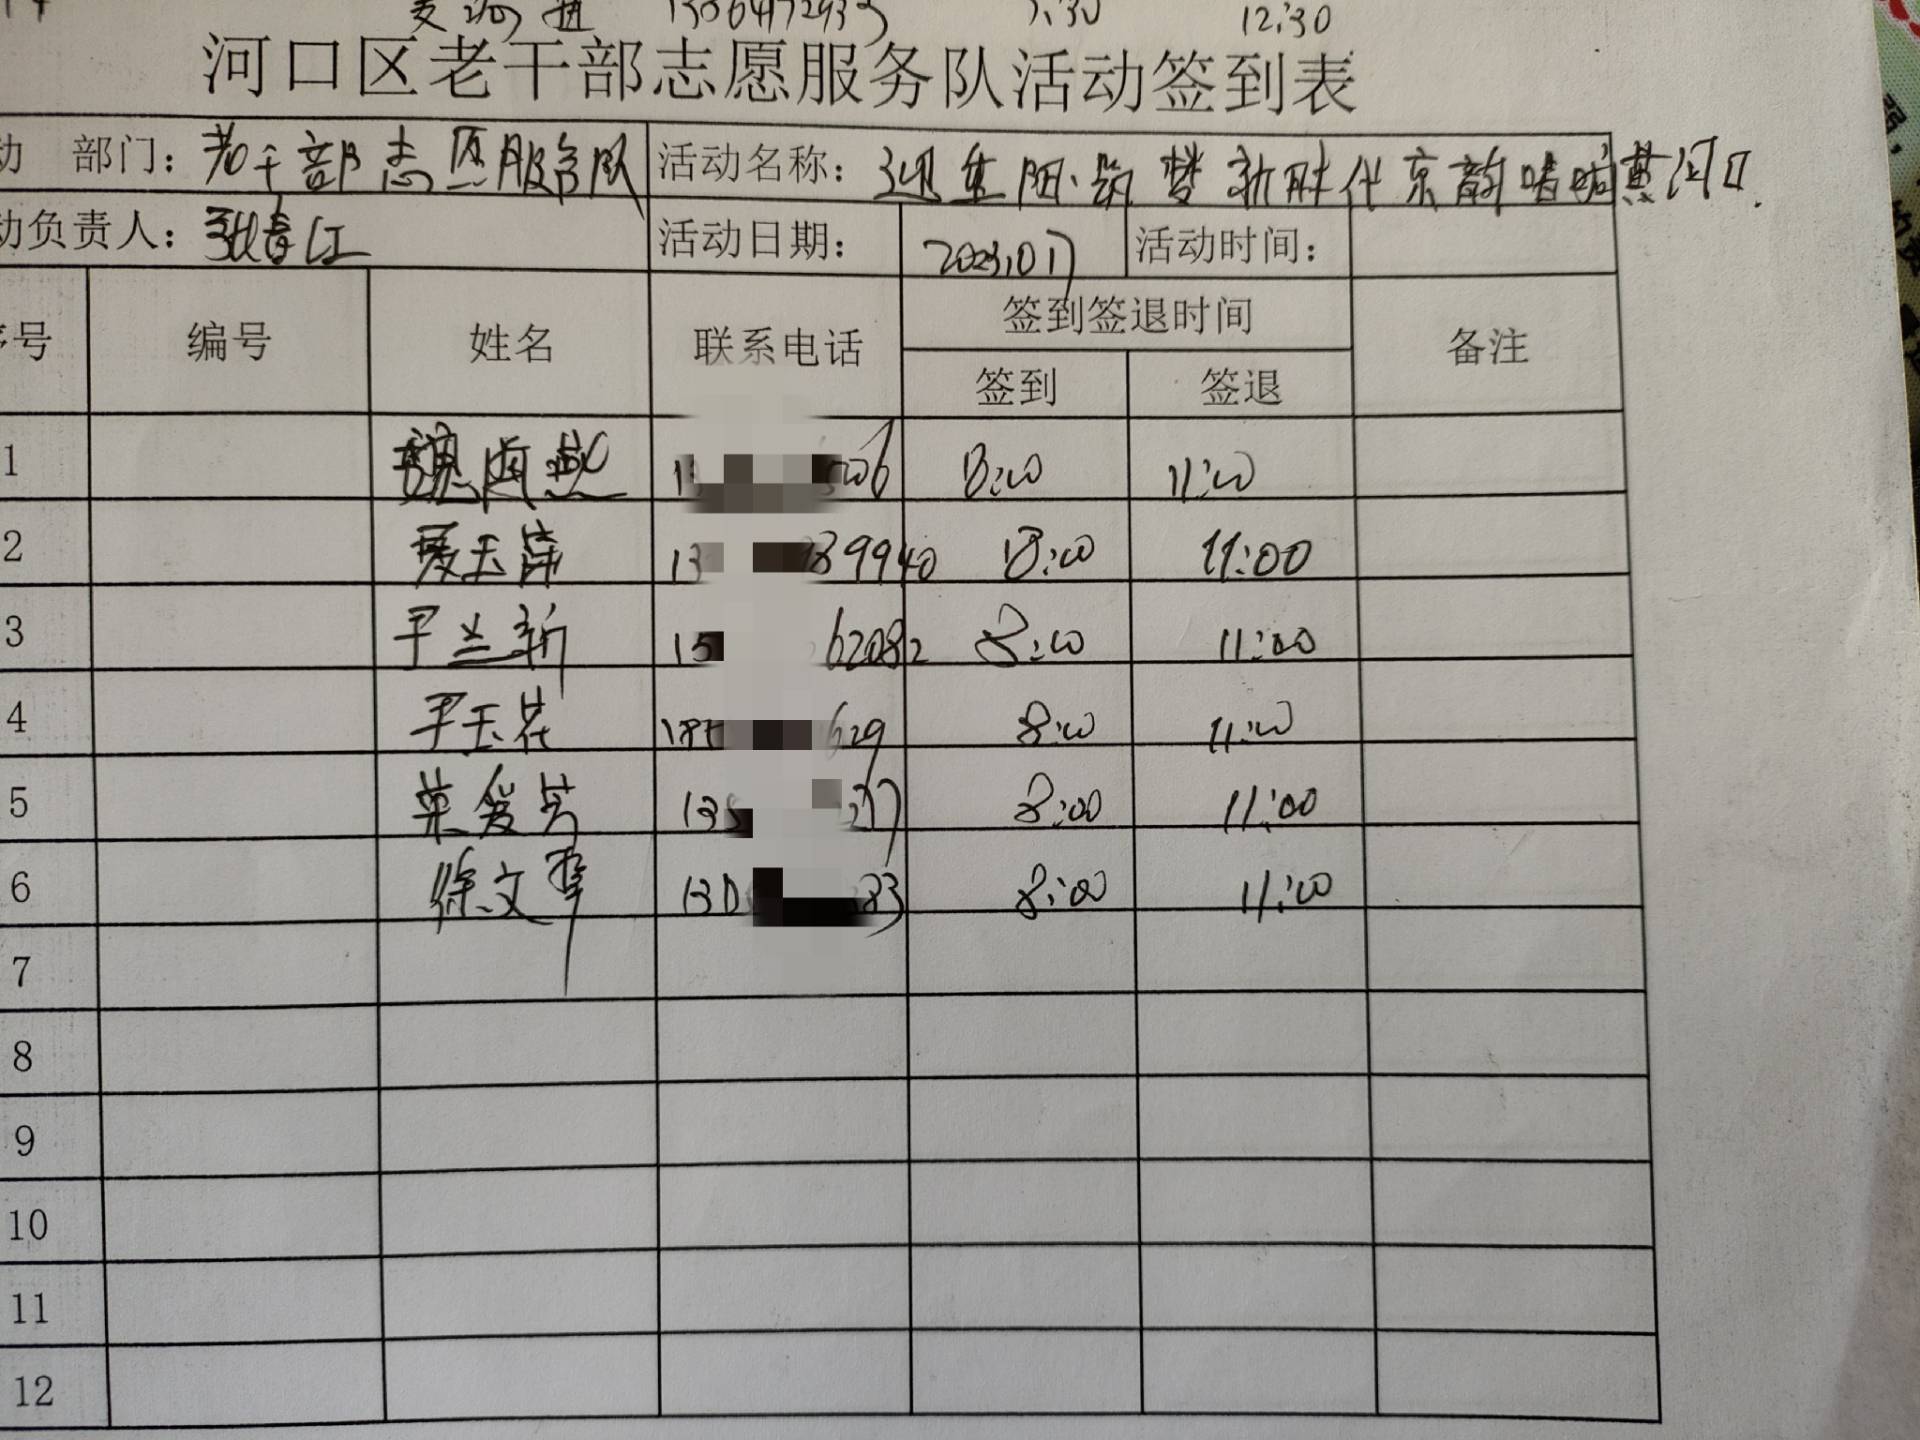 12:30
河口区老干部志愿服务队活动签到表
动 部门: 老干部志愿服务队 活动名称: 迎重阳·筑梦新时代京韵唱响黄河口.
动负责人: 张春江 活动日期: 活动时间:
序号 编号 姓名 联系电话 签到签退时间 备注
签到 签退
1 506 8:00 11:00
2 夏玉萍 13 39940 8:00 11:00
3 于兰新 15 62082 8:00 11:00
4 尹玉花 629 8:00 11:00
5 爱芳 135 277 8:00 11:00
6 徐文翠 130 383 8:00 11:00
7
8
9
10
11
12